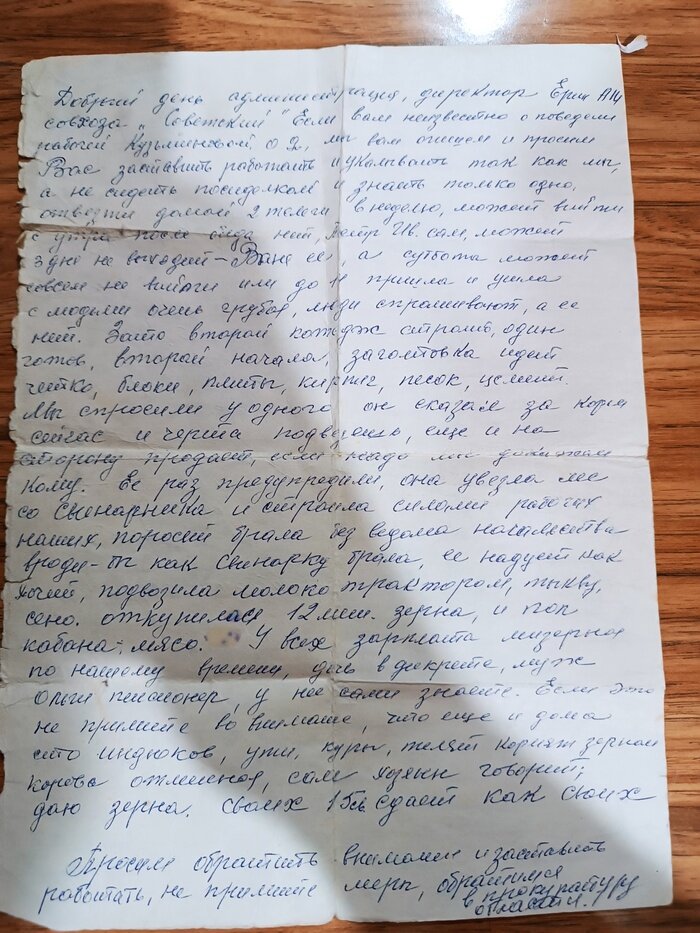 Добрый день администрация, директор Ерин
совхоза "Советский" Если вам неизвестно о поведении
рабочей Кузминской О 2, мы вам опишем и просим
Вас заставить работать и укалывать так как мы,
а не сидеть посиделкой и знать только одно,
отвозти домой 2 телеги в неделю, может выйти
с утра после обеда нет, Петр Ив. сам, может
3 дня не выходит – Ваня ее, а суббота может
совсем не выйти или до 11 пришла и ушла
с людьми очень грубая, люди спрашивают, а ее
нет. Зато второй котедж строит, один
готов, второй начала, заготовка идет
четко, блоки, плиты, кирпич, песок, цемент.
Мы спросили у одного, он сказал за корм
сейчас и черта подвезешь, еще и на
сторону продает, если надо мы докажем
кому. Ее раз предупредили, она увезла лес
со свинарника и строила силами рабочих
наших, поросят брала без ведома начальства
вроди-бы как свинарку брала, ее
подвозила молоко трактором, тыкву,
сено. откупилася 12 меш. зерна, и пол
кабана-мясо. У всех зарплата мизерная
по нашему времени, дочь в декрете, муж
Ольги пенсионер, у нее сами знаете. Если это
не примите во внимание, что еще и дома
сто индюков, утки, куры, телят кормят зерном
корова отменная, сам хозяин говорит,
даю зерна. Своих 15 сдает как своих
Просим обратить внимание и заставить
работать, не примите меры, обратимся
в прокуратуру
области.